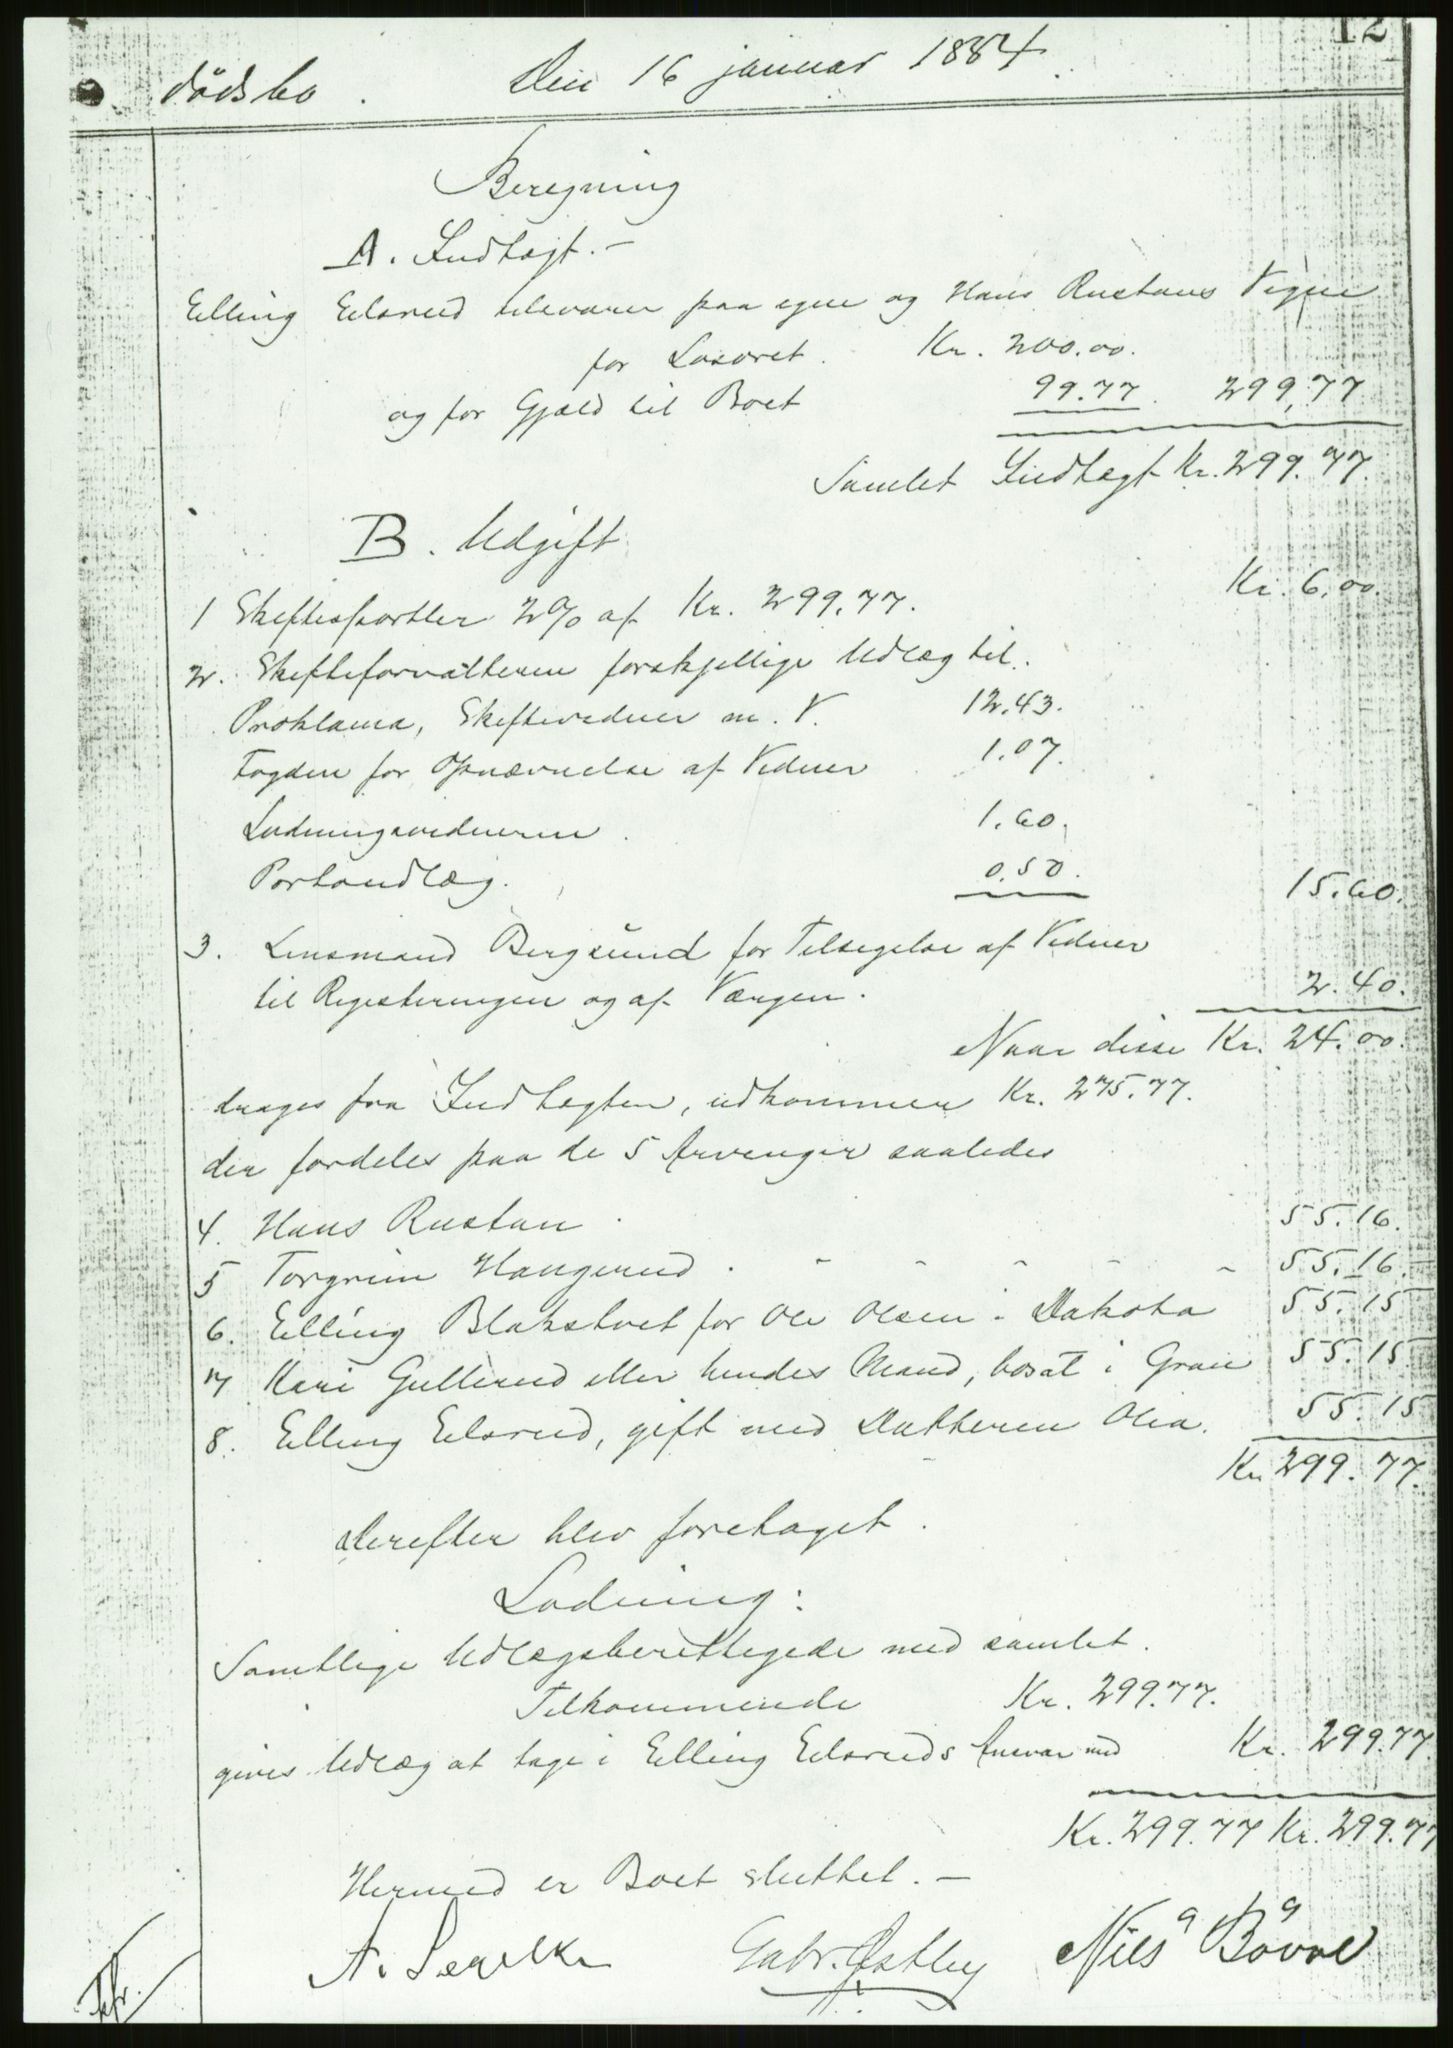 12
dødsbo . Den 16 januar 1884.
Beregning
A. Indtægt. -
Elling Eilsrud tilsvarer paa egne og Hans Rustans Vegne
for Løsøret. Kr. 200.00.
og for Gjæld til Boet 99.77. 299,77
Samlet Indtægt Kr. 299.77.
B. Udgift
1 Skiftesportler 2% af Kr. 299,77. Kr. 6,00.
2. Skifteforvalteren forskjellige Udlæg til.
Proklama, Skiftevidner m. V. 12.43.
Fogden for Opnævnelse af Vidner 1.07.
Lodningsvidnerne . 1.60.
Portoudlæg. 0.50. 15.60.
3. Lensmand Bergsund for Tilsigelse af Vidner
til Registeringen og af Værgen. 2.40.
Naar disse Kr. 24.00.
drages fra Indtægten, udkommer Kr. 275.77.
der fordeles paa de 5 Arvenger saaledes
4. Hans Rustan . 55.16.
5 Torgrim Haugerud . - - - - - 55.16.
6. Elling Blakstvet for Ole Olsen i Dakota 55.15
7 Kari Gullerud eller hendes Mand, bosat i Gran 55.15
8. Elling Eilsrud, gift med Datteren Olia. 55.15
Kr 299.77.
Derefter blev foretaget .
Lodning:
Samtlige Udlægsberettigede med samlet.
Tilkommende Kr. 299.77.
gives Udlæg at tage i Elling Eilsruds Ansvar med Kr. 299.77.
Kr. 299.77 Kr. 299.77
Hermed er Boet sluttet. -
A. Segelke Gabr. Østby Nils Bövre